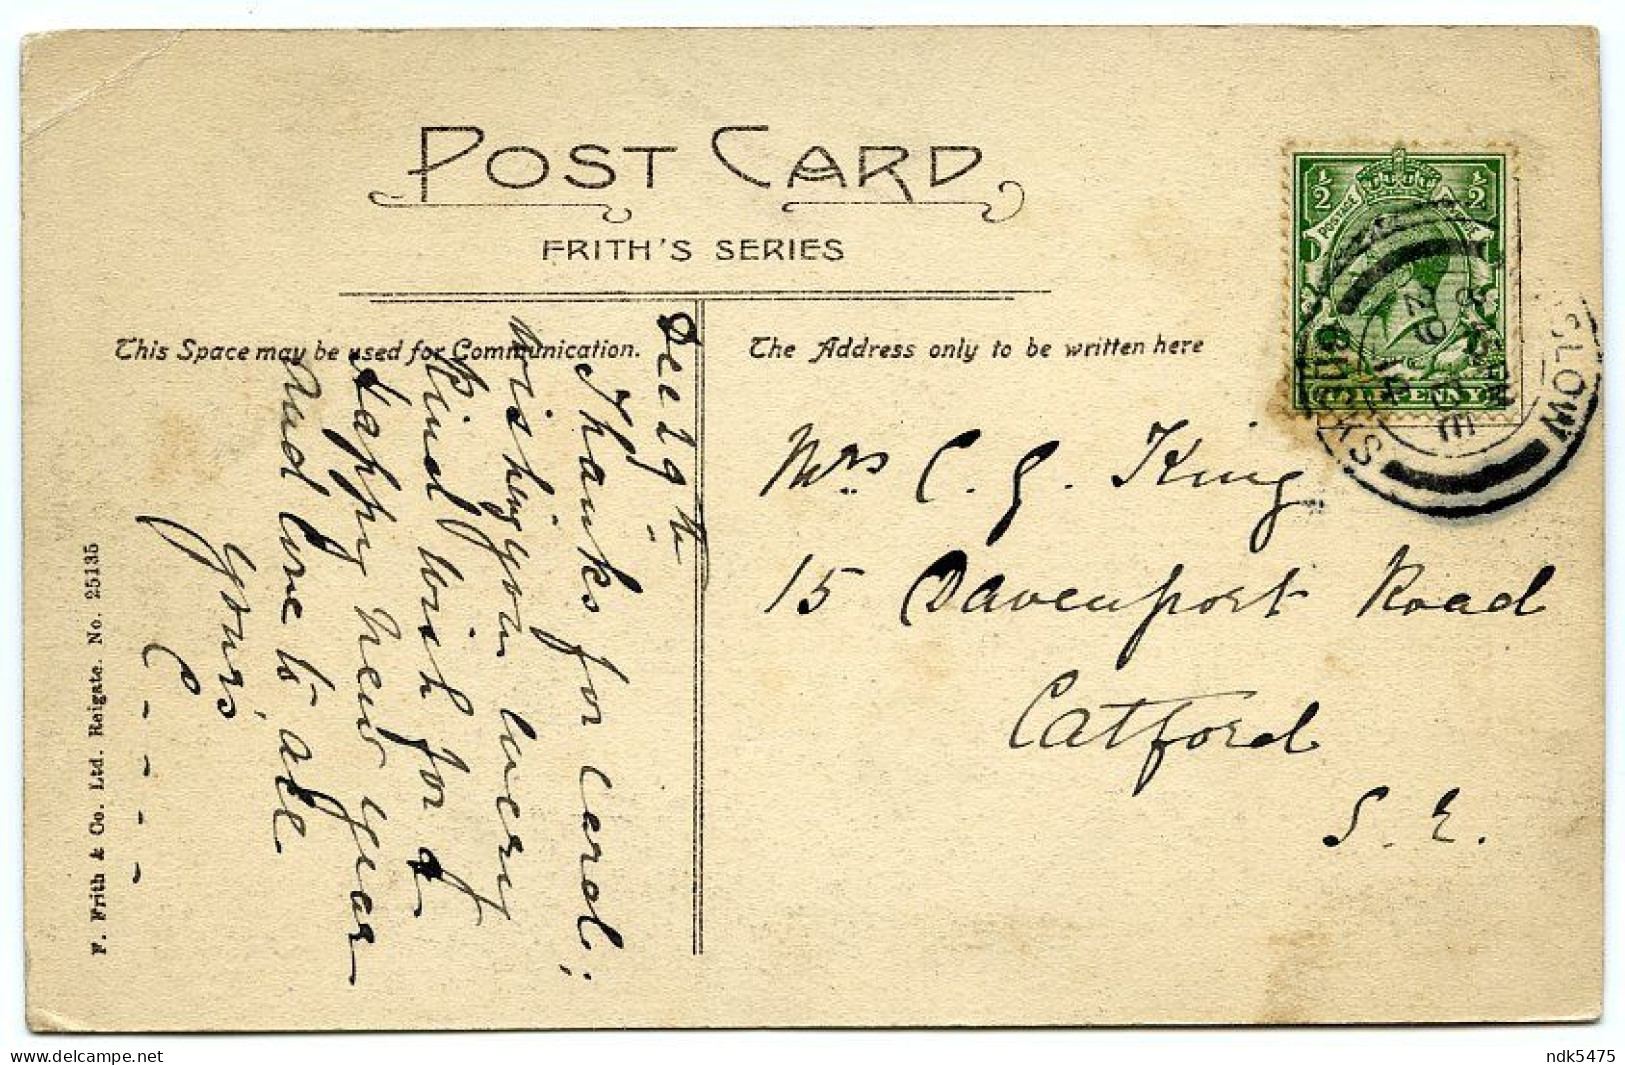 POST CARD
FRITH'S SERIES
This Space may be used for Communication.
The Address only to be written here
Dec 29th
Thanks for card;
wishing you every
Kind wish for a
Happy New Year
And love to all
Yours
C - - - -
Mrs C. G. King
15 Davenport Road
Catford
S. E.
½ ½
POSTAGE
HALFPENNY
SLOW
29
14
F. Frith & Co. Ltd. Reigate. No. 25135
ndk5475